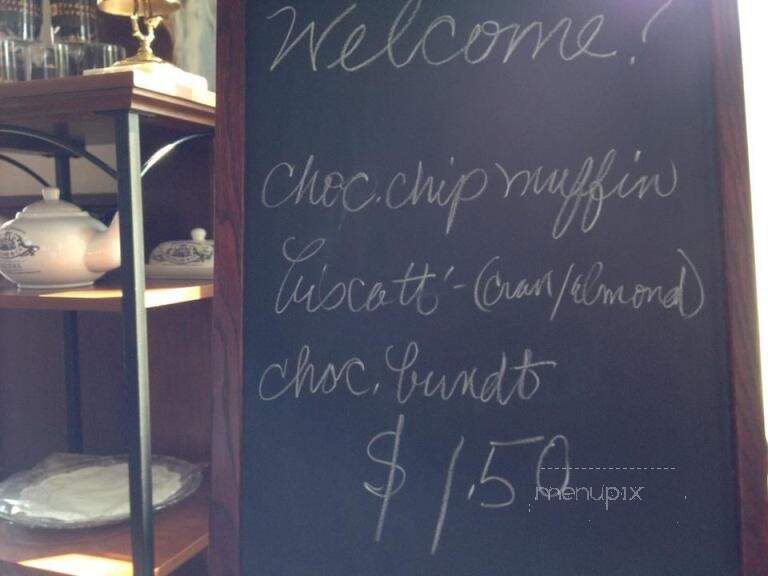 Welcome!
choc. chip muffin
biscotti - (cran/almond)
choc. bundt
$1.50
menupix